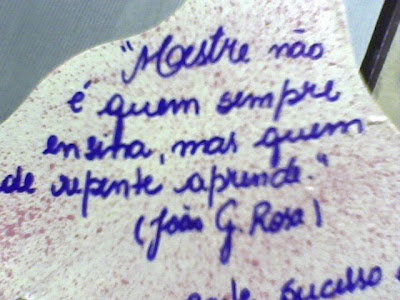 "Mestre não
é quem sempre
ensina, mas quem
de repente aprende."
(João G. Rosa)
sucesso